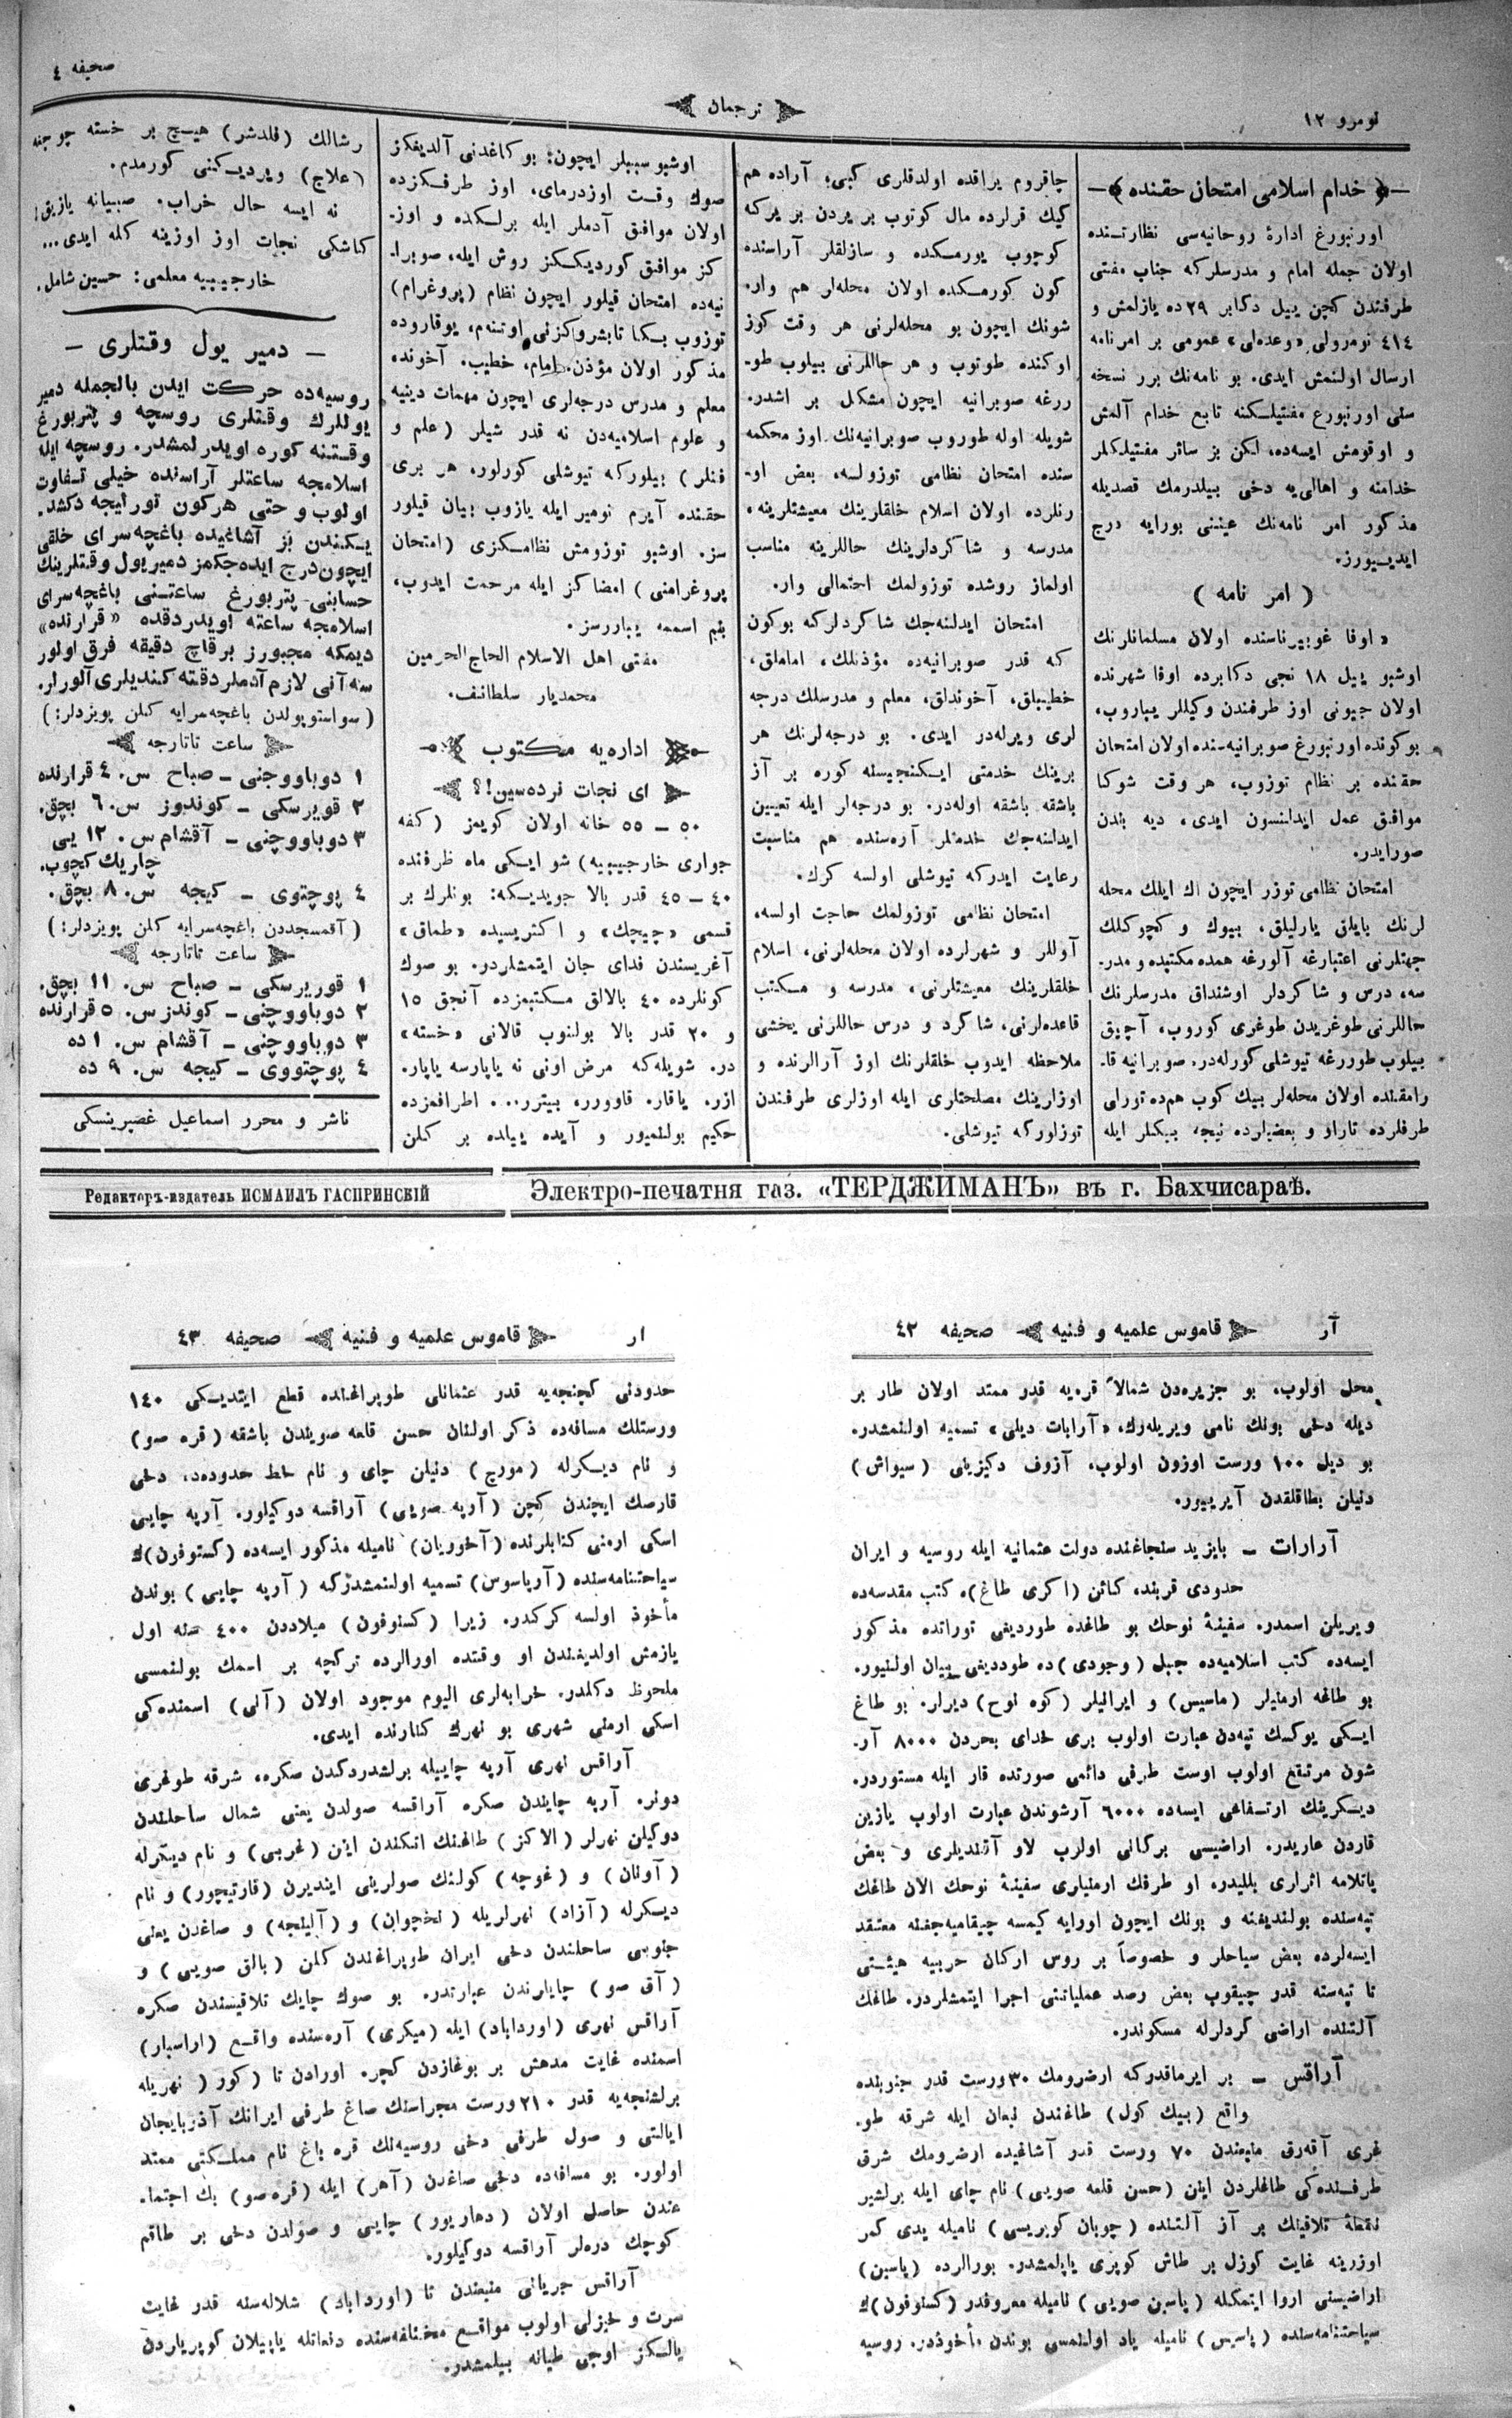 نومرو ١٢
ترجمان
صحیفه ٤
خدام اسلامی امتحان حقنده
اورنبورغ ادارۀ روحانیه‌سی نظارتنده
اولان جمله امام و مدرسلرکه جناب مفتی
طرفندن کچن ییل دکابر ٢٩ ده یازلمش و
٤١٤ نومرولی «وعده‌لی» عمومی بر امرنامه
ارسال اولنمش ایدی. بو نامه‌نك برر نسخه
سنی اورنبورغ مفتیلکنه تابع خدام آلمش
و اوقومش ایسه‌ده، لکن بز سائر مفتیلکلر
خدامنه و اهالی‌یه دخی بیلدرمك قصدیله
مذکور امر نامه‌نك عیننی بورایه درج
ایدییورز.
( امر نامه )
« اوفا غوبیرناسنده اولان مسلمانلرنك
اوشبو ییل ١٨ نجی دکابرده اوفا شهرنده
اولان جیونی اوز طرفندن وکیللر ییاروب،
بوکونده اورنبورغ صوبرانیه‌سنده اولان امتحان
حقنده بر نظام توزوب، هر وقت شوکا
موافق عمل ایدلنسون ایدی، دیه بندن
صورایدر.
امتحان نظامی توزر ایچون اك ایلك محله
لرنك بایلق یارلیلق، بیوك و کچوکلك
جهتلرنی اعتبارغه آلورغه همده مکتبده و مدر-
سه، درس و شاکردلر اوشنداق مدرسلرنك
حاللرنی طوغریدن طوغری کوروب، آچیق
بیلوب طوررغه تیوشلی کورله‌در. صوبرانیه قا-
رامقنده اولان محله‌لر بیك کوب هم‌ده تورلی
طرفلرده تاراو و بعضیلرده نیجه بیکلر ایله
چاقروم یراقده اولدقلری کبی؛ آراده هم
کیك قرلرده مال کوتوب بر یردن بر یرکه
کوچوب یورمکده و سازلقلر آراسنده
کون کورمکده اولان محله‌لر هم وار.
شونك ایچون بو محله‌لرنی هر وقت کوز
اوکنده طوتوب و هر حاللرنی بیلوب طو-
ررغه صوبرانیه ایچون مشکل بر اشدر.
شویله اوله طوروب صوبرانیه‌نك اوز محکمه
سنده امتحان نظامی توزولسه، بعض او-
رنلرده اولان اسلام خلقلرینك معیشتلرینه،
مدرسه و شاکردلرینك حاللرینه مناسب
اولماز روشده توزولمك احتمالی وار.
امتحان ایدلنه‌جك شاکردلرکه بوکون
که قدر صوبرانیه‌ده مؤذنلك، اماملق،
خطیبلق، آخوندلق، معلم و مدرسلك درجه
لری ویرله‌در ایدی. بو درجه‌لرنك هر
برینك خدمتی ایکنجیسنه کوره بر آز
باشقه باشقه اوله‌در. بو درجه‌لر ایله تعیین
ایدلنه‌جك خدمتلر آره‌سنده هم مناسبت
رعایت ایدرکه تیوشلی اولسه کرك.
امتحان نظامی توزولمك حاجت اولسه،
آوللر و شهرلرده اولان محله‌لرنی، اسلام
خلقلرینك معیشتلرنی، مدرسه و مکتب
قاعده‌لرنی، شاکرد و درس حاللرنی یخشی
ملاحظه ایدوب خلقلرنك اوز آرالرنده و
اوزلرینك مصلحتلری ایله اوزلری طرفندن
توزلورکه تیوشلی.
اوشبو سببلر ایچون؛ بو کاغدنی آلدیغکز
صوك وقت اوزدرمای، اوز طرفکزده
اولان موافق آدملر ایله برلکده و اوز-
کز موافق کوردیککز روش ایله، صوبرا-
نیه‌ده امتحان قیلور ایچون نظام (پروغرام)
توزوب بکا تابشروکزنی اوتنه‌م، یوقاروده
مذکور اولان مؤذن، امام، خطیب، آخوند،
معلم و مدرس درجه‌لری ایچون مهمات دینیه
و علوم اسلامیه‌دن نه قدر شیلر (علم و
فنلر) بیلورکه تیوشلی کورلور، هر بری
حقنده آیرم نومیر ایله یازوب بیان قیلور
سز. اوشبو توزومش نظامکزی (امتحان
پروغرامنی) امضاکز ایله مرحمت ایدوب،
بنم اسممه یباررسز.
مفتی اهل الاسلام الحاج الحرمین
محمدیار سلطانف.
اداره‌یه مکتوب
ای نجات نرده‌سین!؟
٥٠ – ٥٥ خانه اولان کویمز (کفه
جواری خارجیبیه) شو ایکی ماه ظرفنده
٤٠ – ٤٥ قدر بالا جویدیکه: بونلرك بر
قسمی «چیچك» و اکثریسیده «طماق»
آغریسندن فدای جان ایتمشلردر. بو صوك
کونلرده ٤٠ بالالق مکتبمزده آنجق ١٥
و ٢٠ قدر بالا بولنوب قالانی «خسته»
در. شویله‌که مرض اونی نه یاپارسه یاپار.
ازر، یاقار، قاوورر، بیتر... اطرافمزده
حکیم بولنمیور و آیده ییلده بر کلن
رشالك (فلدشر) هیچ بر خسته چوجغه
(علاج) ویردیکنی کورمدم.
نه ایسه حال خراب. صبیانه یازیق!
کاشکی نجات اوز اوزینه کله ایدی...
خارجیبیه معلمی: حسین شامل.
دمیر یول وقتلری
روسیه‌ده حرکت ایدن بالجمله دمیر
یوللرك وقتلری روسچه و پتربورغ
وقتنه کوره اویدرلمشدر. روسچه ایله
اسلامجه ساعتلر آراسنده خیلی تفاوت
اولوب و حتی هرکون تورلیجه دکشد.
یکندن بز آشاغیده باغچه‌سرای خلقی
ایچون درج ایده‌جکمز دمیریول وقتلرینك
حسابنی پتربورغ ساعتنی باغچه‌سرای
اسلامجه ساعته اویدردقده «قرارنده»
دیمکه مجبورز برقاچ دقیقه فرق اولور
سه آنی لازم آدملر دقته کندیلری آلورلر.
(سواستوپولدن باغچه‌سرایه کلن پویزدلر:)
ساعت تاتارجه
١ دوباووچنی – صباح س. ٤ قرارنده
٢ قویرسکی – کوندوز س. ٦ بچق.
٣ دوباووچنی – آقشام س. ١٢ یی
چاریك کچوب.
٤ پوچتوی – کیجه س. ٨ بچق.
(آقمسجددن باغچه‌سرایه کلن پویزدلر:)
ساعت تاتارجه
١ قوریرسکی – صباح س. ١١ بچق.
٢ دوباووچنی – کوندز س. ٥ قرارنده
٣ دوباووچنی – آقشام س. ١ ده
٤ پوچتووی – کیجه س. ٩ ده
ناشر و محرر اسماعیل غصپرینسکی
Редакторъ-издатель ИСМАИЛЪ ГАСПРИНСКІЙ
Электро-печатня газ. «ТЕРДЖИМАНЪ» въ г. Бахчисараѣ.
آر قاموس علمیه و فنیه صحیفه ٤٢
محل اولوب، بو جزیره‌دن شمالاً قره‌یه قدر ممتد اولان طار بر
دیله دخی بونك نامی ویریله‌رك، «آرابات دیلی» تسمیه اولنمشدر.
بو دیل ١٠٠ ورست اوزون اولوب، آزوف دکیزینی (سیواش)
دنیلن بطاقلقدن آیرییور.
آرارات – بایزید سنجاغنده دولت عثمانیه ایله روسیه و ایران
حدودی قربنده کائن (اکری طاغ)ه کتب مقدسه‌ده
ویریلن اسمدر. سفینۀ نوحك بو طاغده طوردیغی توراتده مذکور
ایسه‌ده کتب اسلامیه‌ده جبل (وجودی)ده طوردیغی بیان اولنیور.
بو طاغه ارمنیلر (ماسیس) و ایرانیلر (کوه نوح) دیرلر. بو طاغ
ایکی یوکسك تپه‌دن عبارت اولوب بری خدای بحردن ٨٠٠٠ آر-
شون مرتفع اولوب اوست طرفی دائمی صورتده قار ایله مستوردر.
دیکرینك ارتفاعی ایسه‌ده ٦٠٠٠ آرشوندن عبارت اولوب یازین
قاردن عاریدر. اراضیسی برکانی اولوب لاو آقندیلری و بعض
پاتلامه اثراری بللیدر، او طرفك ارمنیلری سفینۀ نوحك الان طاغك
تپه‌سنده بولندیغنه و بونك ایچون اورایه کیمسه چیقامیه‌جغنه معتقد
ایسه‌لرده بعض سیاحلر و خصوصاً بر روس ارکان حربیه هیئتی
تا تپه‌سنه قدر چیقوب بعض رصد عملیاتنی اجرا ایتمشلردر. طاغك
آلتنده اراضی کردلرله مسکوندر.
آراقس – بر ایرماقدرکه ارضرومك ٣٠ ورست قدر جنوبنده
واقع (بیك کول) طاغندن نبعان ایله شرقه طو-
غری آقه‌رق منبعندن ٧٠ ورست قدر آشاغیده ارضرومك شرق
طرفنده‌کی طاغلردن اینن (حسن قلعه صویی) نام چای ایله برلشیر
نقطۀ تلاقینك بر آز آلتنده (چوبان کوپریسی) نامیله یدی کمر
اوزرینه غایت کوزل بر طاش کوپری یاپلمشدر. بورالرده (پاسین)
اراضیسنی اروا ایتمکله (پاسین صویی) نامیله معروفدر (کسنوفون)ك
سیاحتنامه‌سنده (پاسیس) نامیله یاد اولنمسی بوندن مأخوذدر. روسیه
ار قاموس علمیه و فنیه صحیفه ٤٣
حدودنی کچنجه‌یه قدر عثمانلی طوپراغنده قطع ایتدیکی ١٤٠
ورستلك مسافه‌ده ذکر اولنان حسن قلعه صویندن باشقه (قره صو)
و نام دیکرله (مورج) دنیلن چای و نام خط حدودده، دخی
قارصك ایچندن کچن (آرپه صویی) آراقسه دوکیلور. آرپه چایی
اسکی ارمنی کتابلرنده (آخوریان) نامیله مذکور ایسه‌ده (کسنوفون)ك
سیاحتنامه‌سنده (آرپاسوس) تسمیه اولنمشدرکه (آرپه چایی) بوندن
مأخوذ اولسه کرکدر. زیرا (کسنوفون) میلاددن ٤٠٠ سنه اول
یازمش اولدیغندن او وقتده اورالرده ترکچه بر اسمك بولنمسی
ملحوظ دکلدر. خرابه‌لری الیوم موجود اولان (آنی) اسمنده‌کی
اسکی ارمنی شهری بو نهرك کنارنده ایدی.
آراقس نهری آرپه چاییله برلشدردکدن صکره، شرقه طوغری
دونر. آرپه چایندن صکره آراقسه صولدن یعنی شمال ساحلندن
دوکیلن نهرلر (الاکز) طاغنك اتکندن اینن (غربی) و نام دیکرله
(آونان) و (غوچه) کولنك صولرینی ایندیرن (قارنیچور) و نام
دیکرله (آزاد) نهرلریله (نخچوان) و (آلینجه) و صاغدن یعنی
جنوبی ساحلندن دخی ایران طوپراغندن کلن (بالق صویی) و
(آق صو) چایلرندن عبارتدر. بو صوك چایك تلاقیسندن صکره
آراقس نهری (اورداباد) ایله (میکری) آره‌سنده واقع (اراسبار)
اسمنده غایت مدهش بر بوغازدن کچر. اورادن تا (کور) نهریله
برلشنجه‌یه قدر ٢١٠ ورست مجراسنك صاغ طرفی ایرانك آذربایجان
ایالتی و صول طرفی دخی روسیه‌نك قره باغ نام مملکتی ممتد
اولور. بو مسافه‌ده دخی صاغدن (آهر) ایله (قره‌صو) بك اجتما-
عندن حاصل اولان (دهاریور) چایی و صولدن دخی بر طاقم
کوچك دره‌لر آراقسه دوکیلور.
آراقس جریانی منبعندن تا (اورداباد) شلاله‌سنه قدر غایت
سرت و خیزلی اولوب مواقع مختلفه‌سنده دفعاتله یاپیلان کوپریاردن
یالکز اوچی طیانه بیلمشدر.